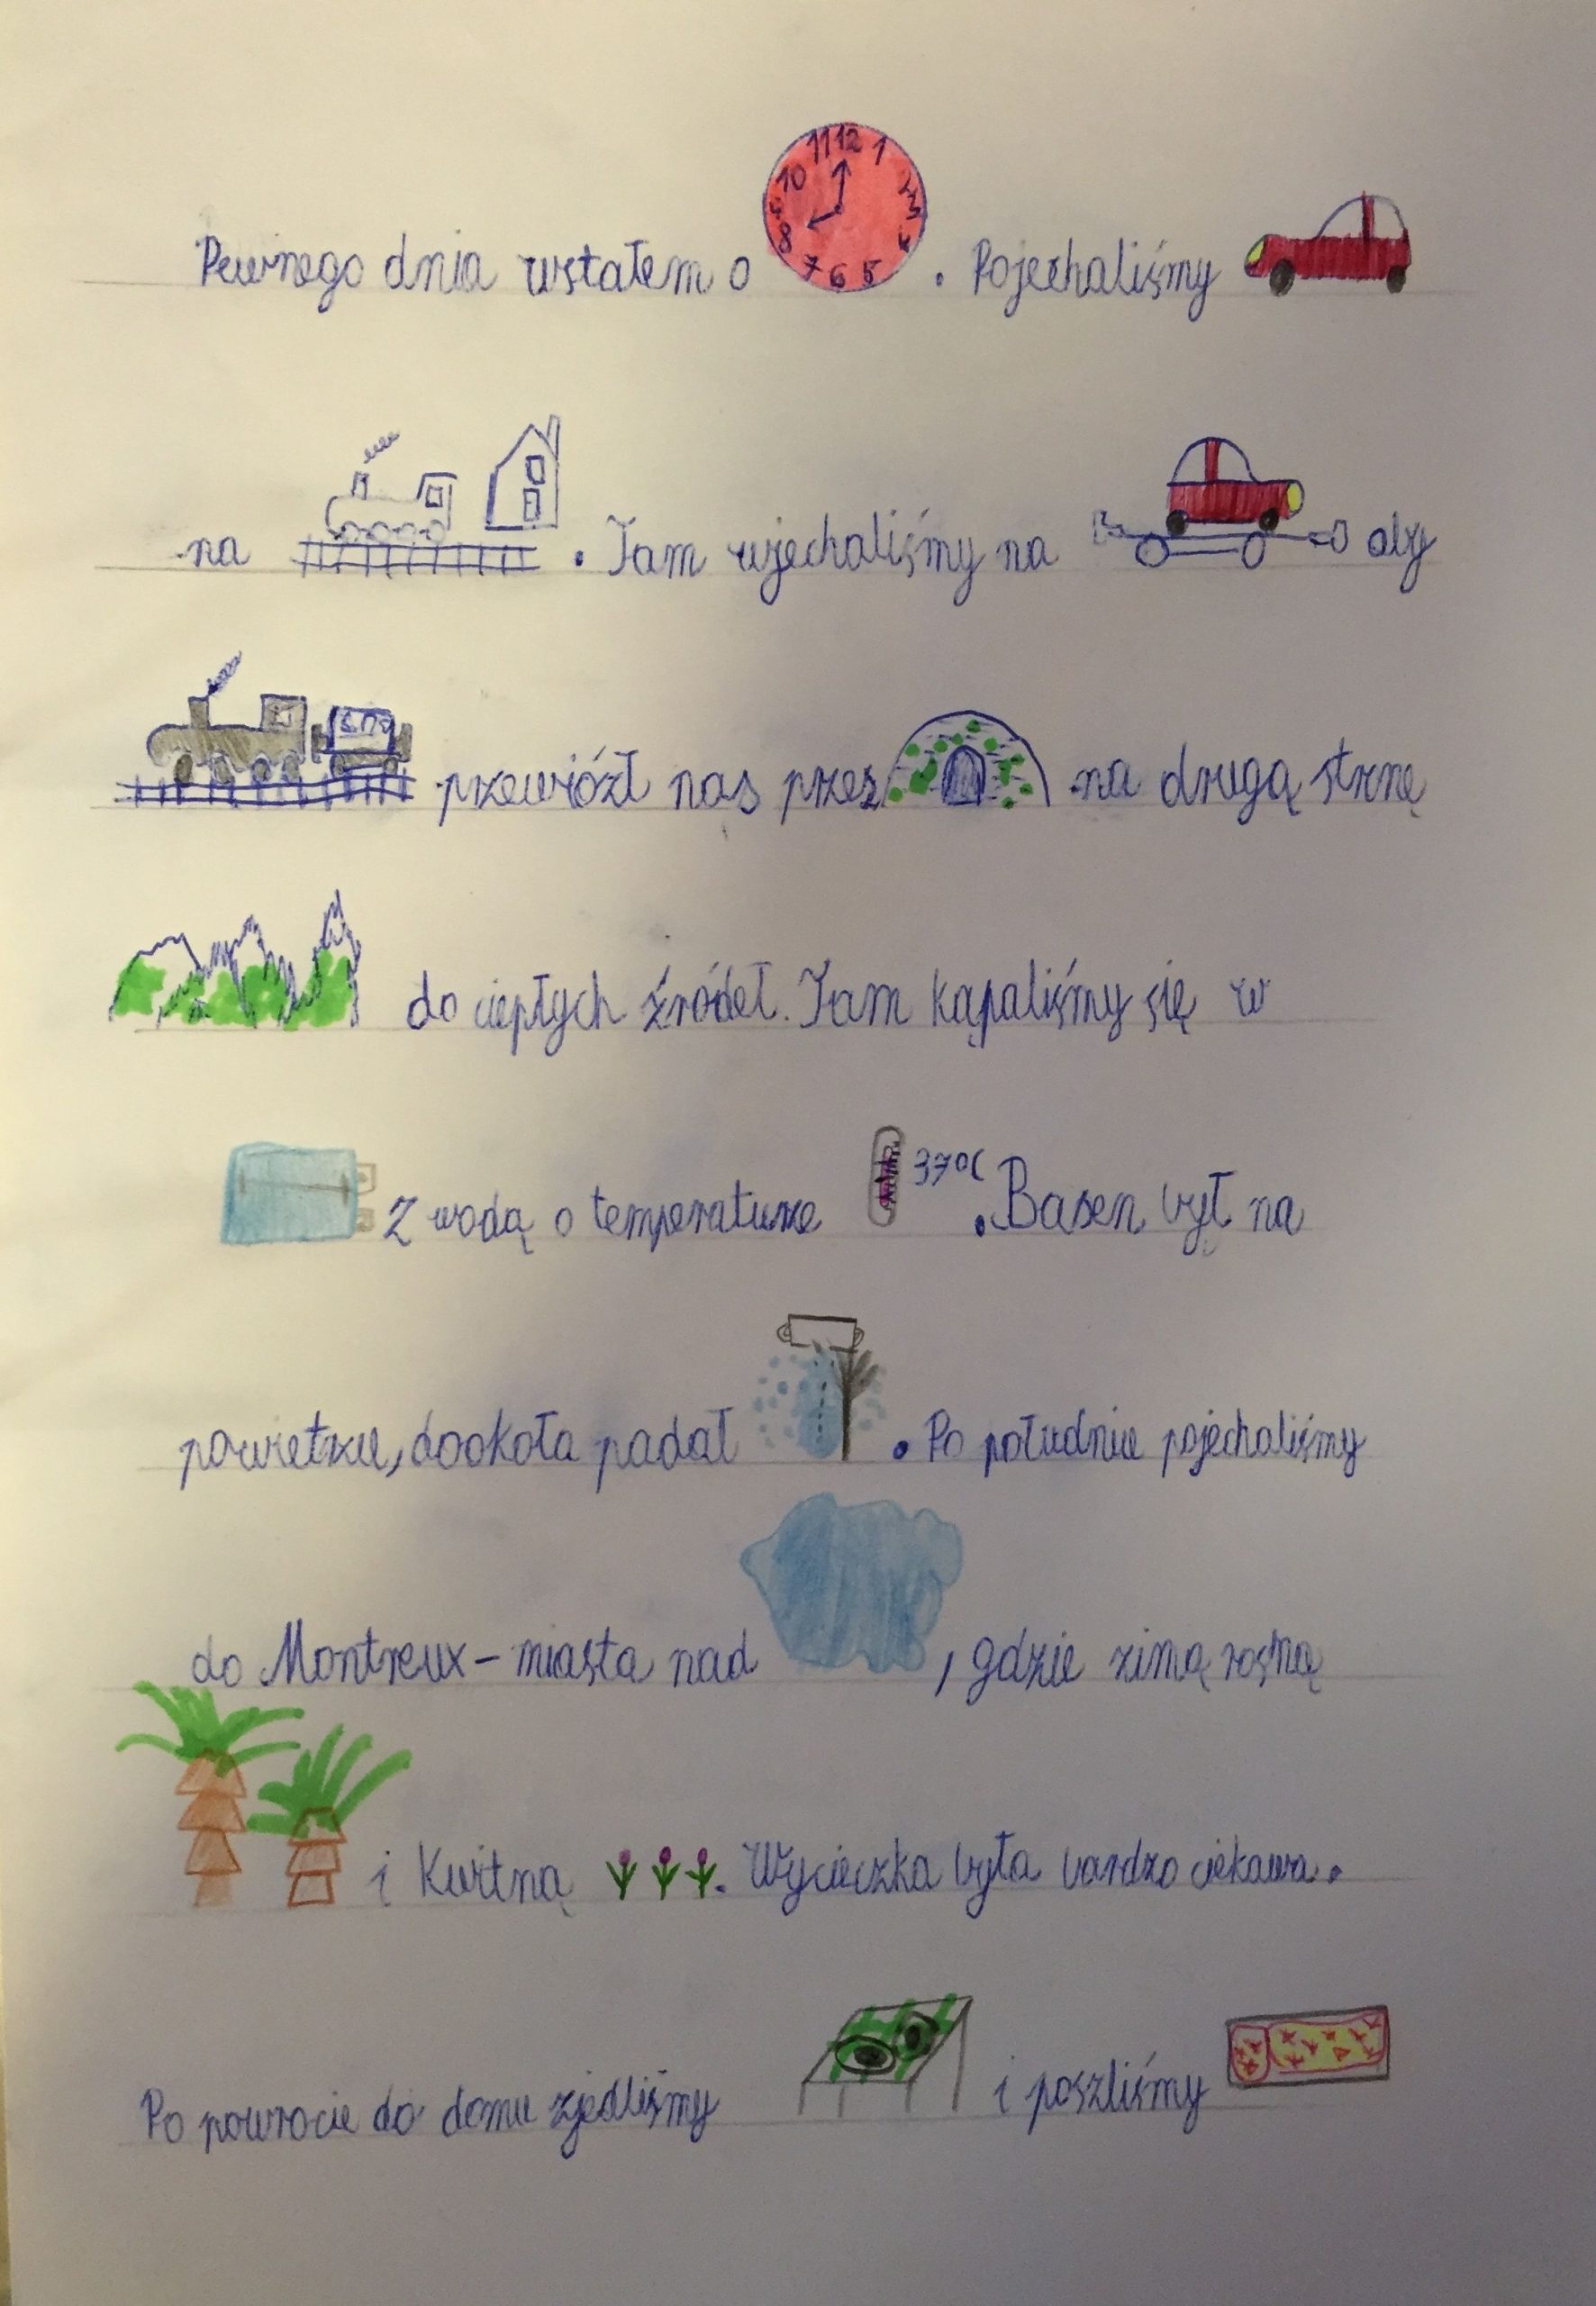 11 12 1
10 2
9 3
8 4
7 6 5
Pewnego dnia wstałem o . Pojechaliśmy
na . Tam wjechaliśmy na aby
przewiózł nas przez na drugą strnę
do ciepłych źródeł. Tam kąpaliśmy się w
z wodą o temperaturze 37°C. Basen był na
powietrzu, dookoła padał . Po południu pojechaliśmy
do Montreux - miasta nad , gdzie zimą rosną
i kwitną . Wycieczka była bardzo ciekawa.
Po powrocie do domu zjedliśmy i poszliśmy